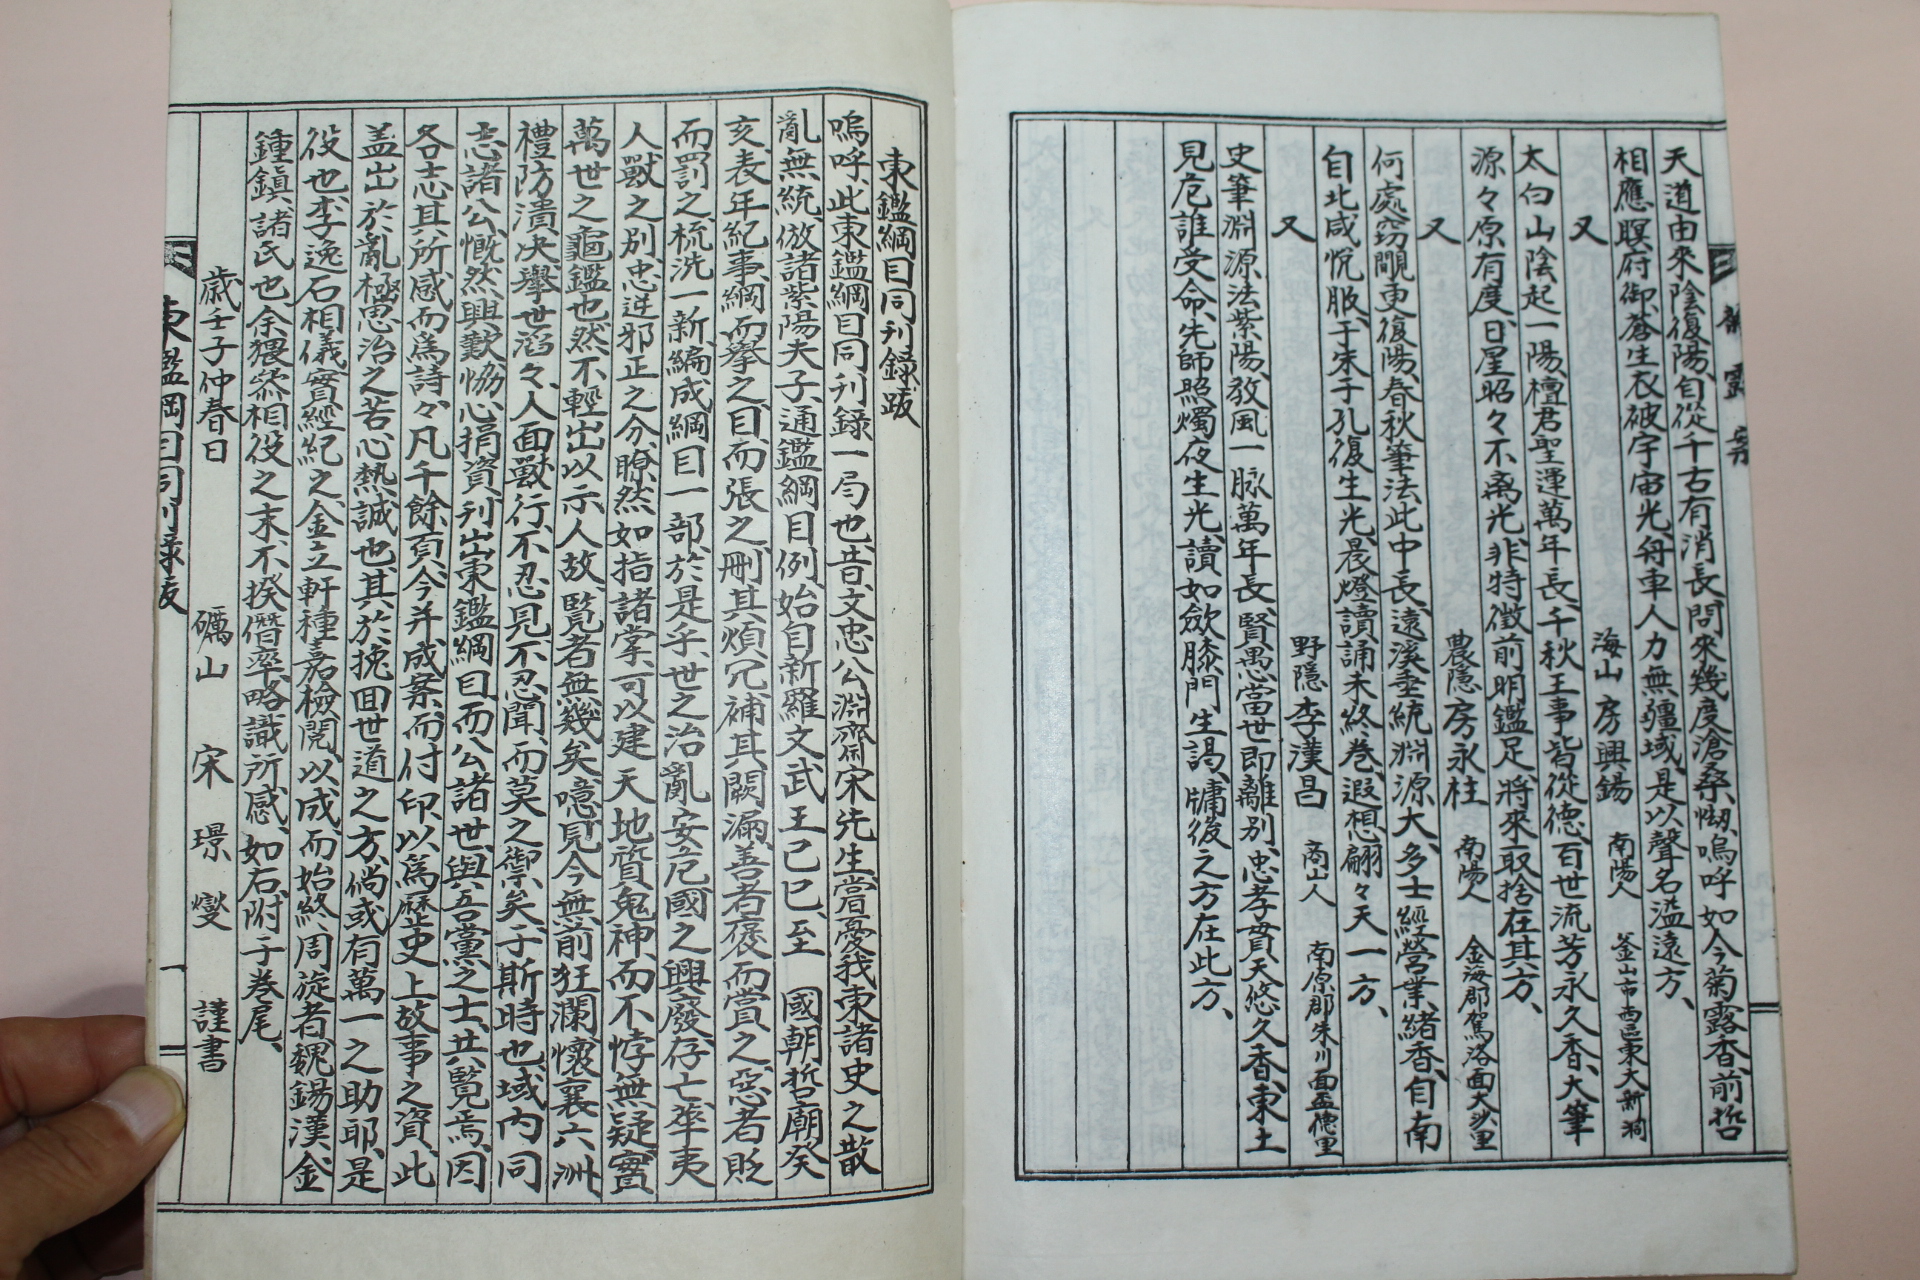 天道由來陰復陽、自從千古有消長、問來幾度滄桑㤼、嗚呼如今菊露香、前哲
相應瞑府御、蒼生衣被宇宙光、舟車人力無疆域、是以聲名溢遠方、
又　海山 房興錫　南陽人　釜山市西區東大新洞
太白山陰起一陽、檀君聖運萬年長、千秋王事皆從德、百世流芳永久香、大筆
源々原有度、日星昭々不离光、非特徵前明鑑足、將來取捨在其方、
又　農隱 房永柱　南陽人　金海郡駕洛面大沙里
何處窃覸更復陽、春秋筆法此中長、遠溪垂統淵源大、多士經營業緖香、自南
自北咸悅服、于朱于孔復生光、晨燈讀誦未終卷、遐想翩々天一方、
又　野隱 李漢昌　商山人　南原郡朱川面孟德里
史筆淵源法紫陽、敎風一脉萬年長、賢愚當世即離別、忠孝貫天悠久香、東土
見危誰受命、先師照燭夜生光、讀如歛膝門生謁、牗後之方在此方、
東鑑綱目同刊錄跋
嗚呼此東鑑綱目同刊錄一局也、昔文忠公淵齋宋先生嘗憂我東諸史之散
亂無統、倣諸紫陽夫子通鑑綱目例、始自新羅文武王己巳、至　國朝哲廟癸
亥、表年紀事、綱而擧之、目而張之、刪其煩冗、補其闕漏、善者褒而賞之、惡者貶
而罰之、梳洗一新、編成綱目一部、於是乎、世之治亂安危、國之興廢存亡、華夷
人獸之別、忠逆邪正之分、瞭然如指諸掌、可以建　天地質鬼神、而不悖無疑、實
萬世之龜鑑也、然不輕出以示人、故覽者無幾矣、噫見今無前狂瀾、懷襄六洲、
禮防潰决、擧世滔々、人面獸行、不忍見不忍聞、而莫之禦矣、于斯時也、域內同
志諸公、慨然興歎、恊心捐資、刊出東鑑綱目、而公諸世、與吾黨之士、共覽焉、因
各志其所感而爲詩々、凡千餘頁、今并成案、而付印、以爲歷史上故事之資、此
盖出於亂極思治之苦心熱誠也、其於挽回世道之方、倘或有萬一之助耶、是
役也、李逸石相儀、實經紀之、金立軒種嘉檢閱、以成、而始終周旋者、魏錫漢金
鍾鎭諸氏也、余猥叅相役之末、不揆僭率、略識所感、如右、附于卷尾、
歲壬子仲春日　礪山 宋 璟 燮 謹書
東鑑綱目同刊錄跋
一